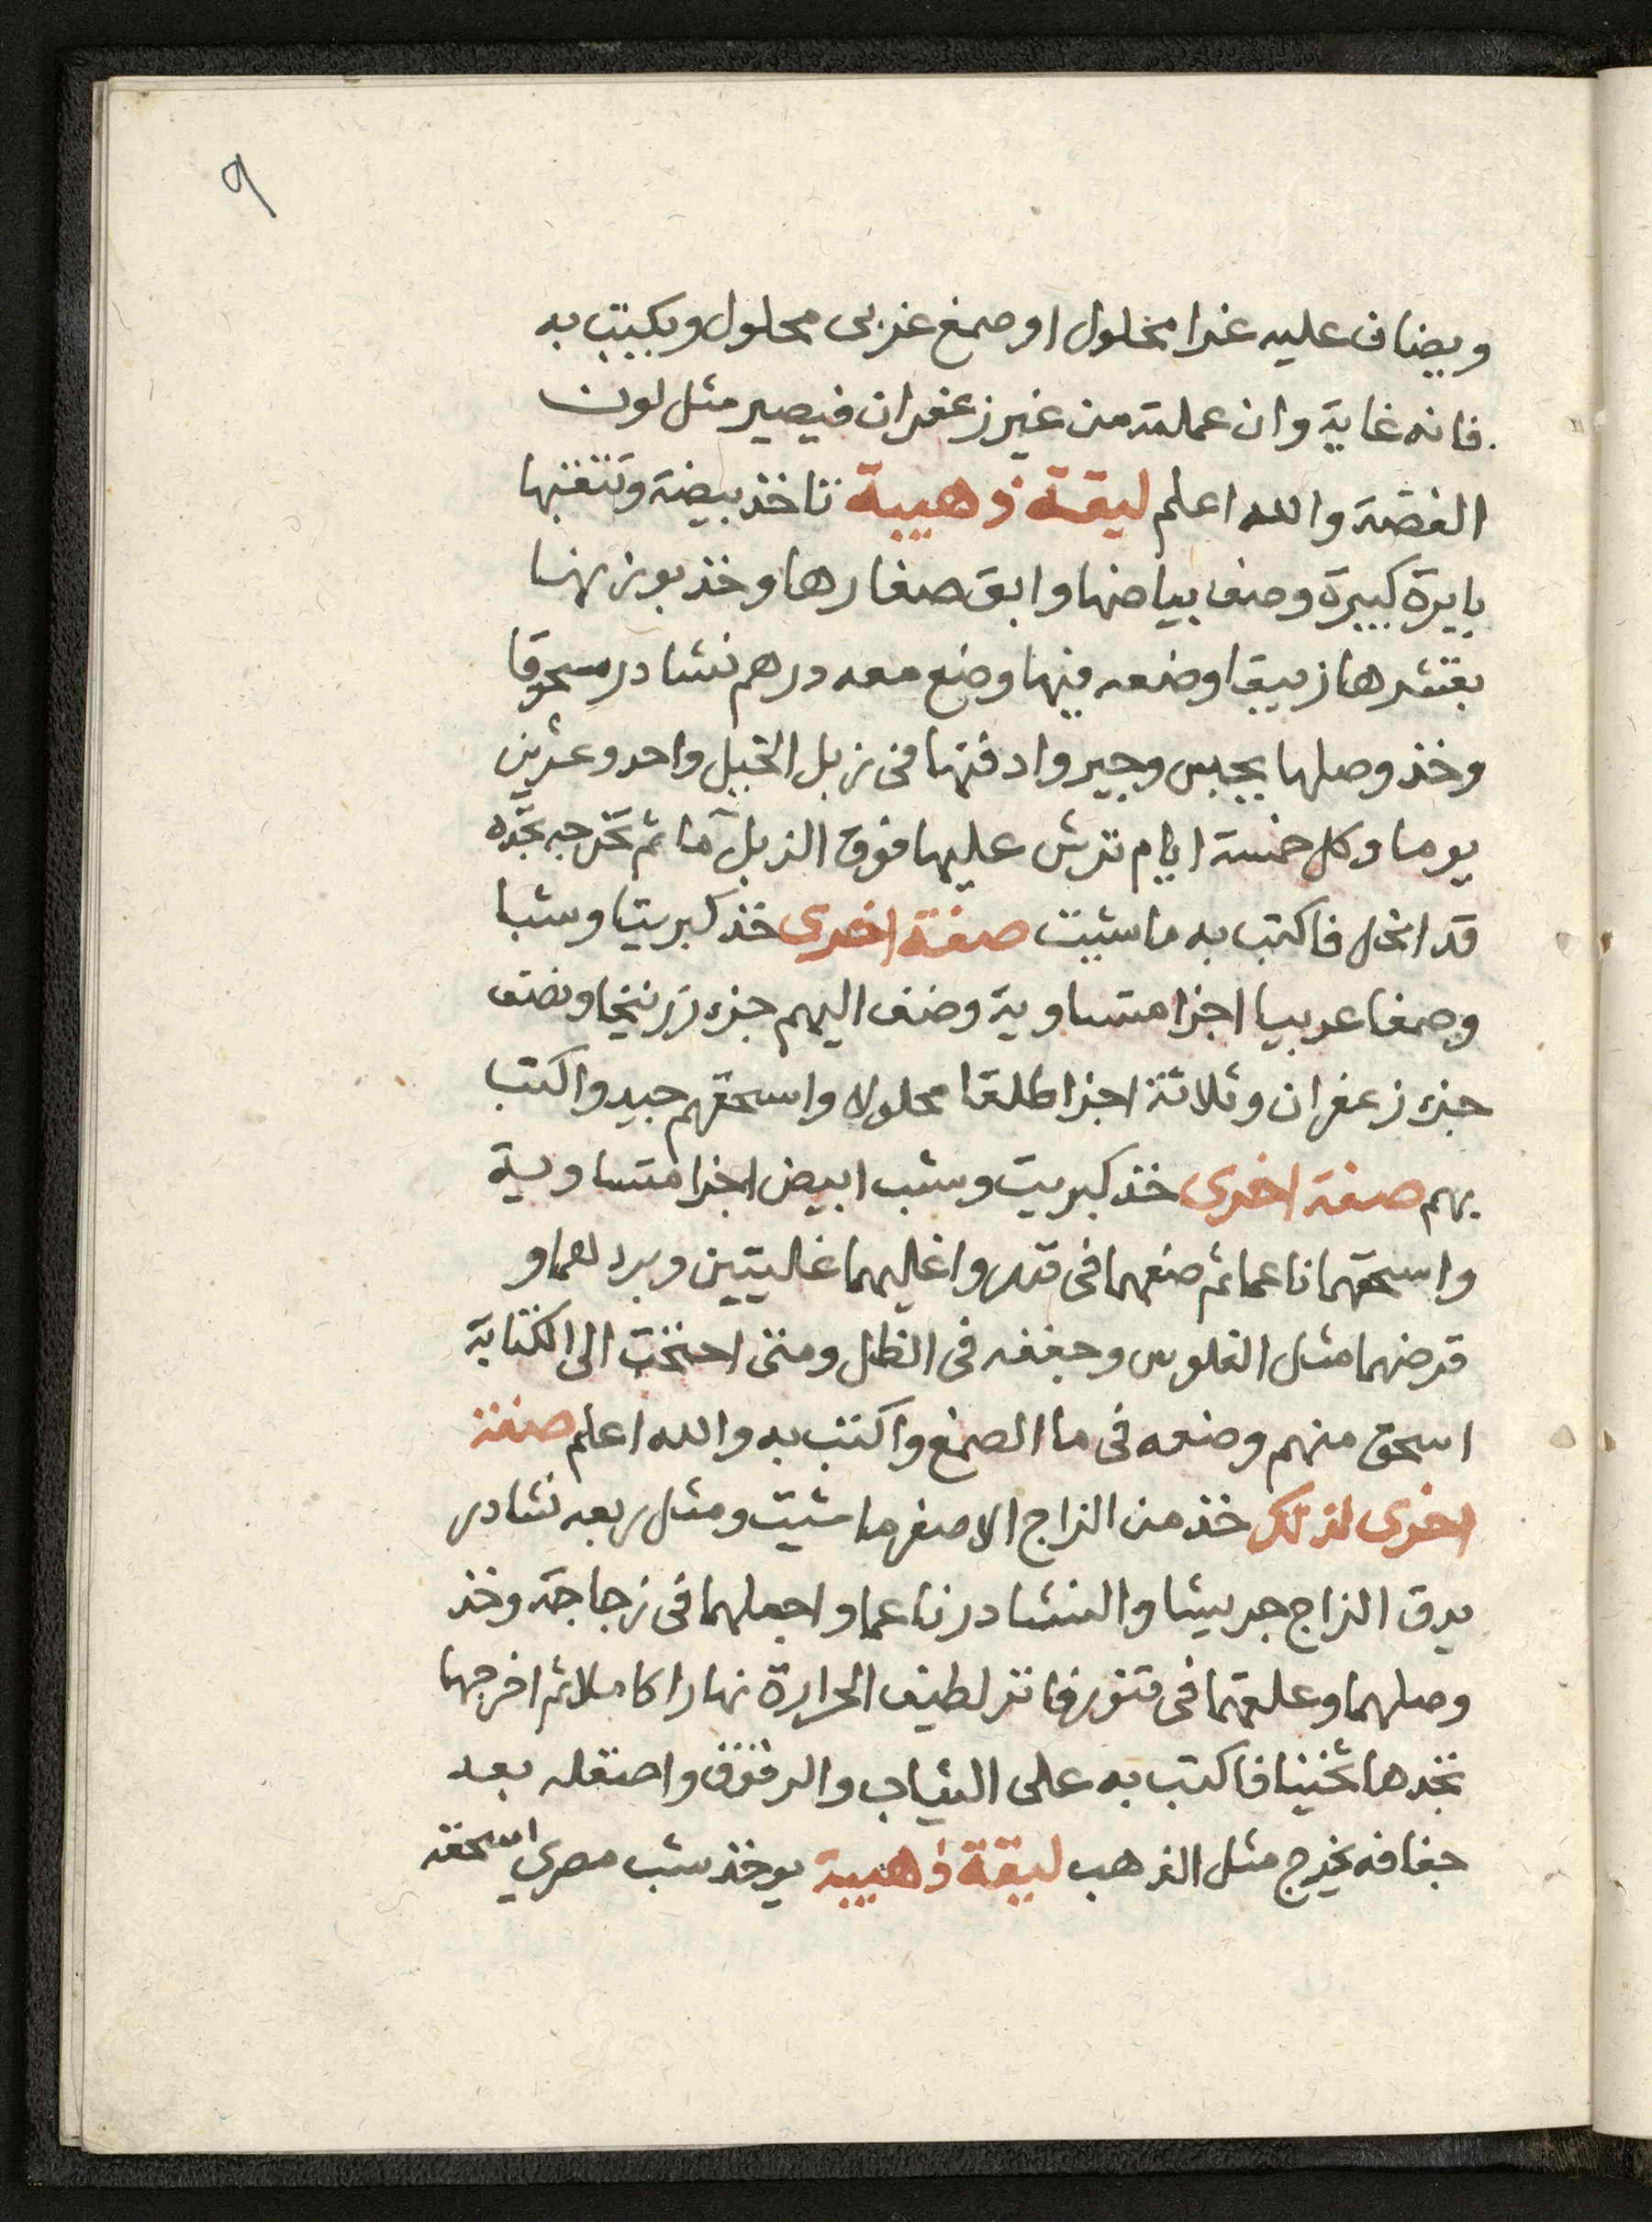 ٩
ويضاف عليه غرا محلول او صمغ عربى محلول ويكتب به
فانه غاية وان عملته من غير زعفران فيصير مثل لون
الفضة والله اعلم ليقة ذهبية تاخذ بيضة وتثقبها
بابرة كبيرة وصف بياضها وابق صفارها وخذ بوزنها
بقشرها زيبقا وضعه فيها وضع معه درهم نشادر مسحوقا
وخذ وصلها بجبس وجير وادفنها فى زبل الخيل واحد وعشرين
يوما وكل خمسة ايام ترش عليها فوق الزبل ما ثم تخرجه تجده
قد انحل فاكتب به ما شيت صفة اخرى خذ كبريتا وشبا
وصمغا عربيا اجزا متساوية وضف اليهم جزء زرنيخا ونصف
جزء زعفران وثلاثة اجزا طلقا محلولا واسحقهم جيد واكتب
بهم صفة اخرى خذ كبريت وشب ابيض اجزا متساوية
واسحقهما ناعما ثم ضعهما فى قدر واغليهما غليتين وبردهما و
قرصهما مثل الفلوس وجففه فى الظل ومتى احتجت الى الكتابة
اسحق منهم وضعه فى ما الصمغ واكتب به والله اعلم صفة
اخرى لذلك خذ من الزاج الاصفر ما شيت ومثل ربعه نشادر
يدق الزاج جريشا والنشادر ناعما واجعلهما فى زجاجة وخذ
وصلهما وعلقهما فى تنور فاتر لطيف الحرارة نهارا كاملا ثم اخرجها
تجدها ثخينا فاكتب به على الثياب والرقوق واصقله بعد
جفافه يخرج مثل الذهب ليقة ذهبية يوخذ شب مصري اسحقه